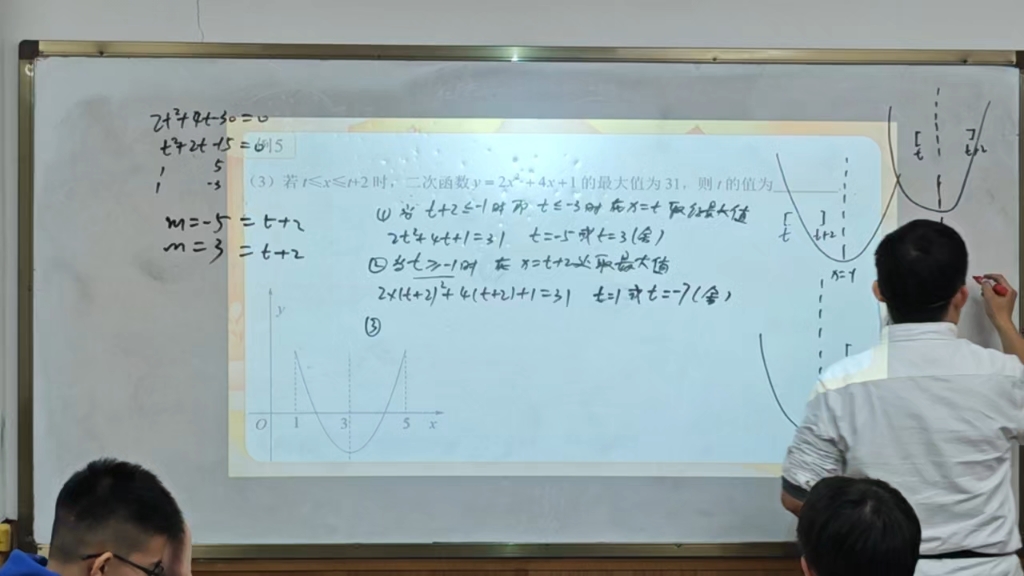 2t²+4t-30=0
t²+2t-15=0
1 5
1 -3
m=-5=t+2
m=3=t+2
例5
（3）若t≤x≤t+2时，二次函数y=2x²+4x+1的最大值为31，则t的值为________
① 当t+2≤-1时即t≤-3时在x=t取得最大值
2t²+4t+1=31 t=-5或t=3(舍)
② 当t≥-1时 在x=t+2处取最大值
2×(t+2)²+4(t+2)+1=31 t=1或t=-7(舍)
③
y
O 1 3 5 x
[ ]
t t+2
x=-1
[ ]
t t+2
[